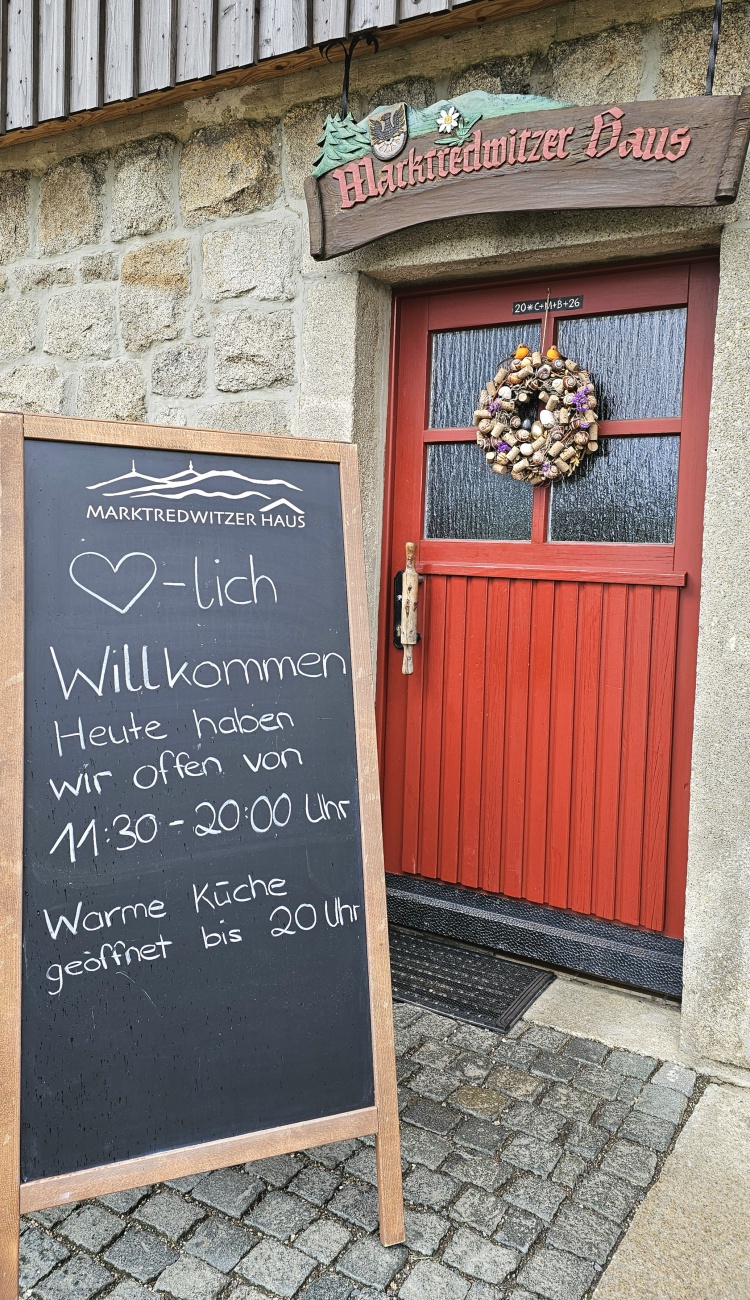 Marktredwitzer Haus
20*C+M+B+26
MARKTREDWITZER HAUS
♡-lich
Willkommen
Heute haben
wir offen von
11:30-20:00 Uhr
Warme Küche
geöffnet bis 20 Uhr